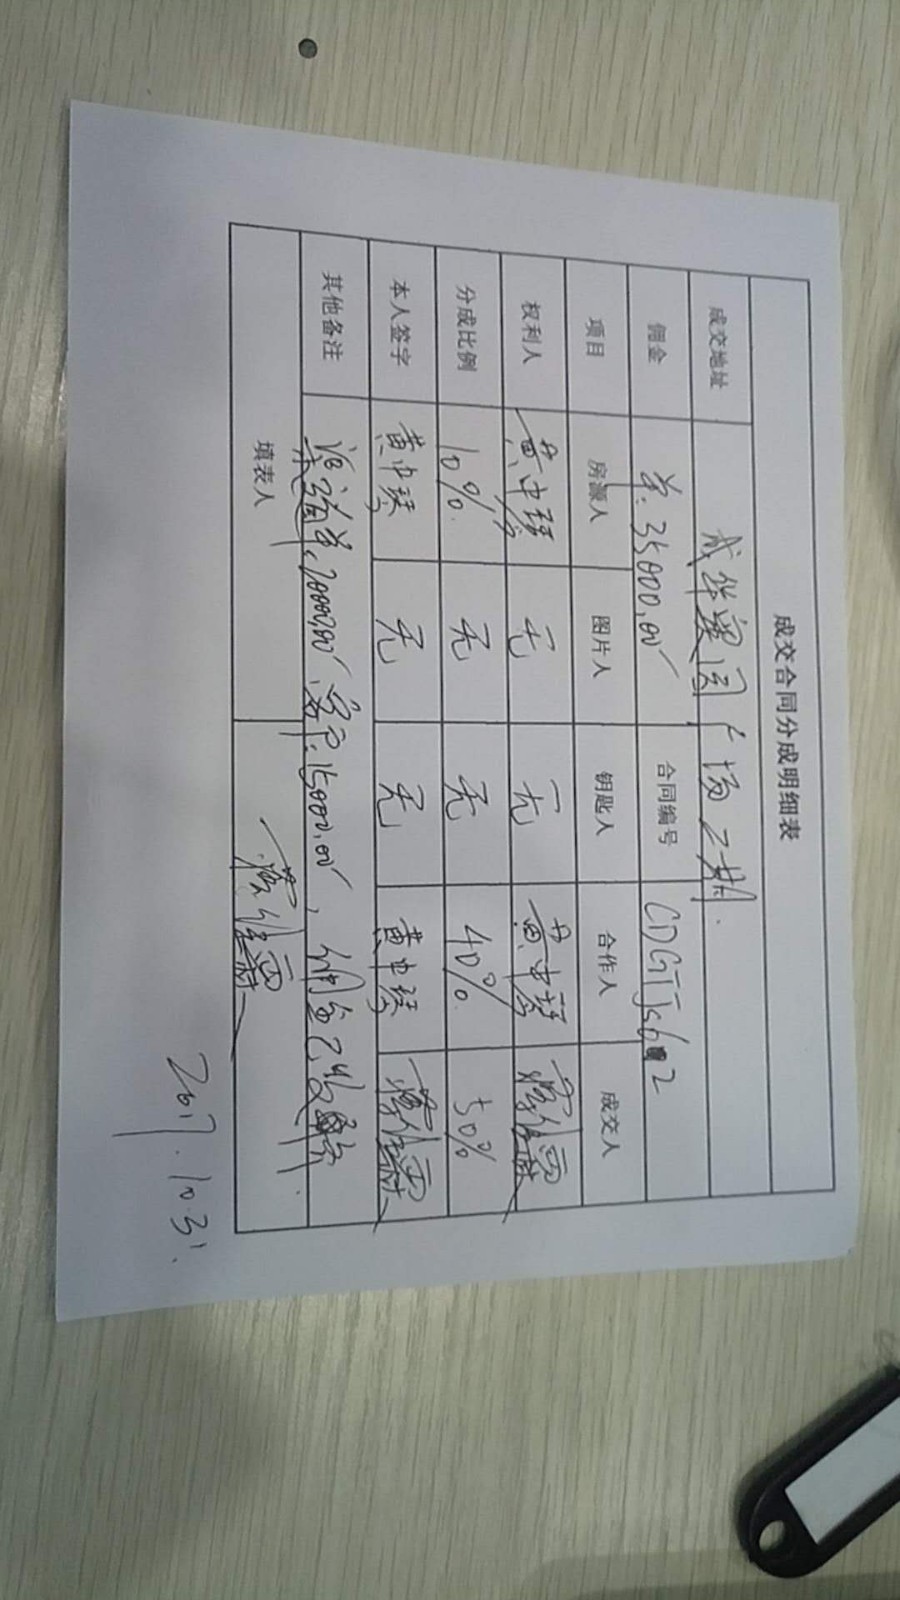 成交合同分成明细表
成交地址 成华奥园广场二期.
佣金 单:35000.00 合同编号 CDGTJS602
项目 房源人 图片人 钥匙人 合作人 成交人
权利人 黄中琴 无 无 黄中琴
分成比例 10% 无 无 40% 50%
本人签字 黄中琴 无 无 黄中琴
其他备注 20000.00 客户:15000.00, 佣金已收
填表人
2017.10.31.